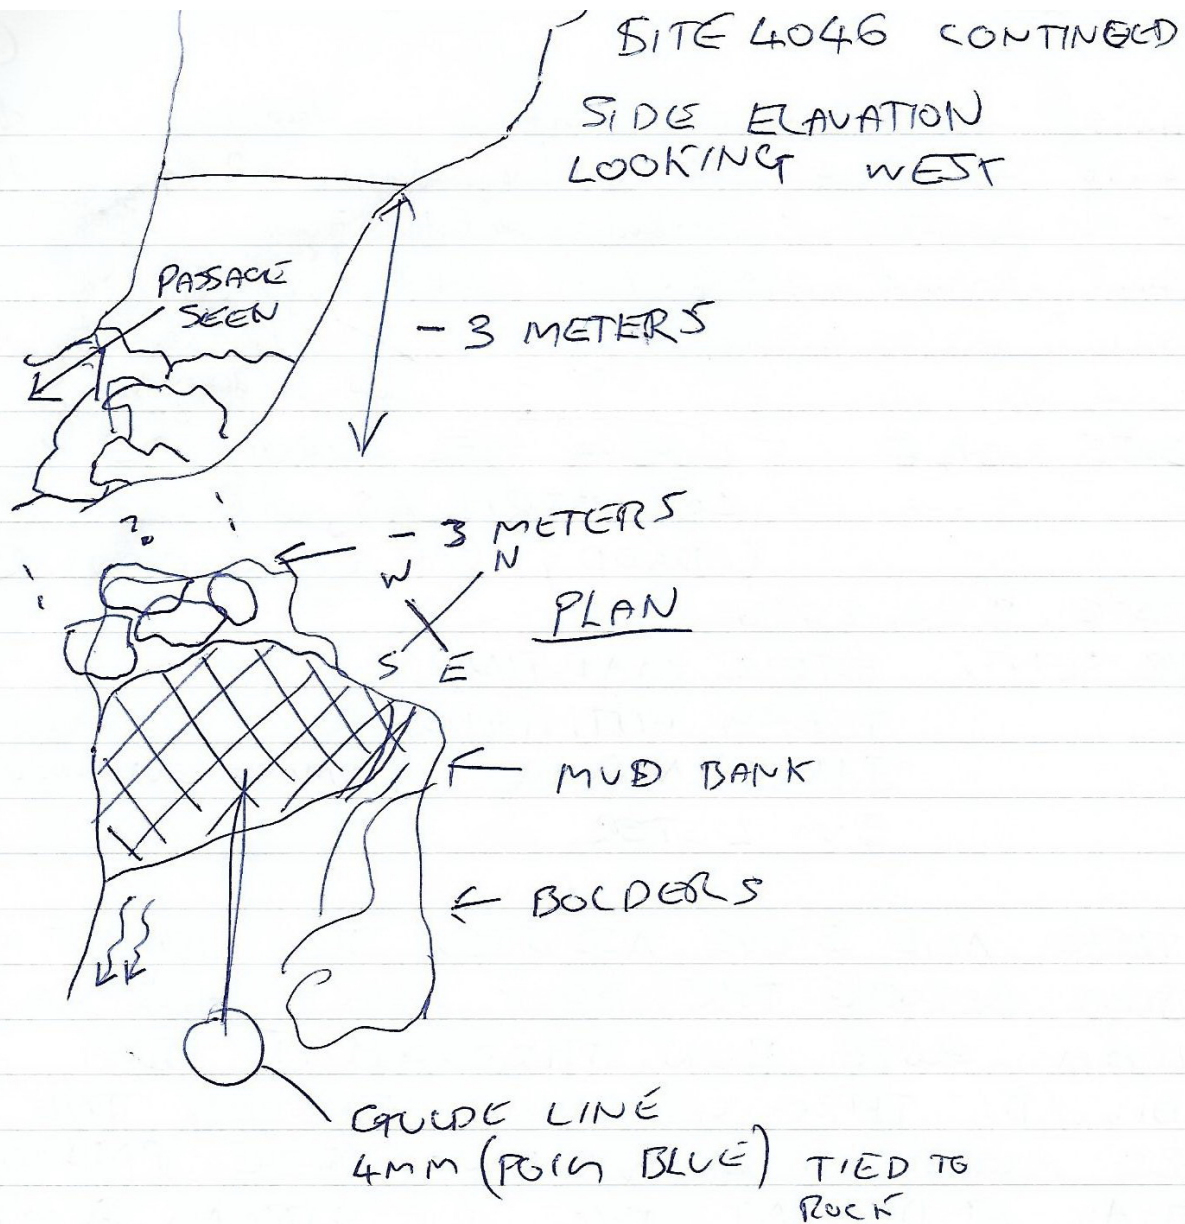 SITE 4046 CONTINUED
SIDE ELAVATION
LOOKING WEST
PASSAGE
SEEN
- 3 METERS
?
- 3 METERS
W N
PLAN
S E
MUD BANK
BOLDERS
GUIDE LINE
4MM (POLY BLUE) TIED TO
ROCK